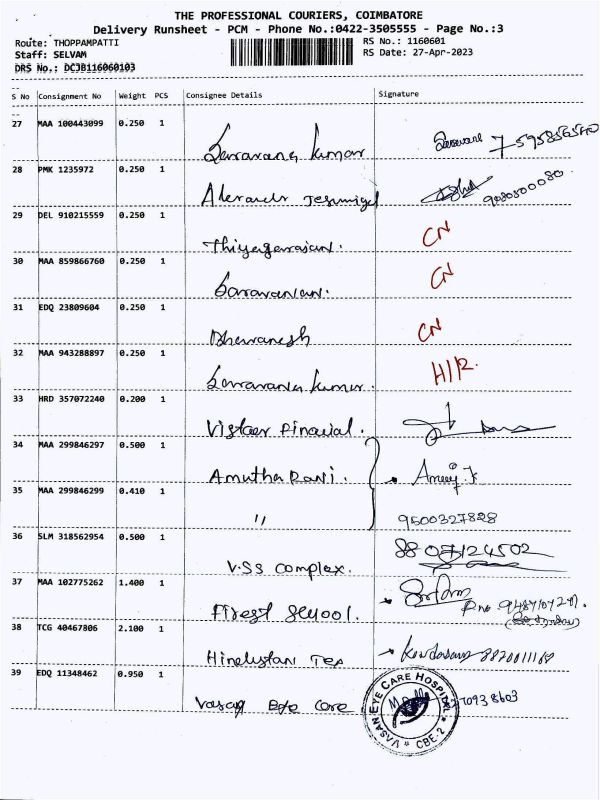 THE PROFESSIONAL COURIERS, COIMBATORE
Delivery Runsheet - PCM - Phone No.:0422-3505555 - Page No.:3
Route: THOPPAMPATTI RS No.: 1160601
Staff: SELVAM RS Date: 27-Apr-2023
DRS No.: DCJB116060103
S No Consignment No Weight PCS Consignee Details Signature
27 MAA 100443099 0.250 1
Saravana Kumar
28 PMK 1235972 0.250 1
29 DEL 910215559 0.250 1
CN
Thiyagarajan.
30 MAA 859866760 0.250 1
CN
Saravanan.
31 EDQ 23809604 0.250 1
CN
Dhavanesh
32 MAA 943288897 0.250 1
Saravana Kumar.
33 HRD 357072240 0.200 1
34 MAA 299846297 0.500 1
Amutha Rani.
35 MAA 299846299 0.410 1
" 9500327828
36 SLM 318562954 0.500 1
88 07124502
V.SS complex.
37 MAA 102775262 1.400 1
First School.
38 TCG 40467806 2.100 1
Hindustan Tea
39 EDQ 11348462 0.950 1
Vasan Eye Care
VASAN EYE CARE HOSPITAL
* CBE-2 *